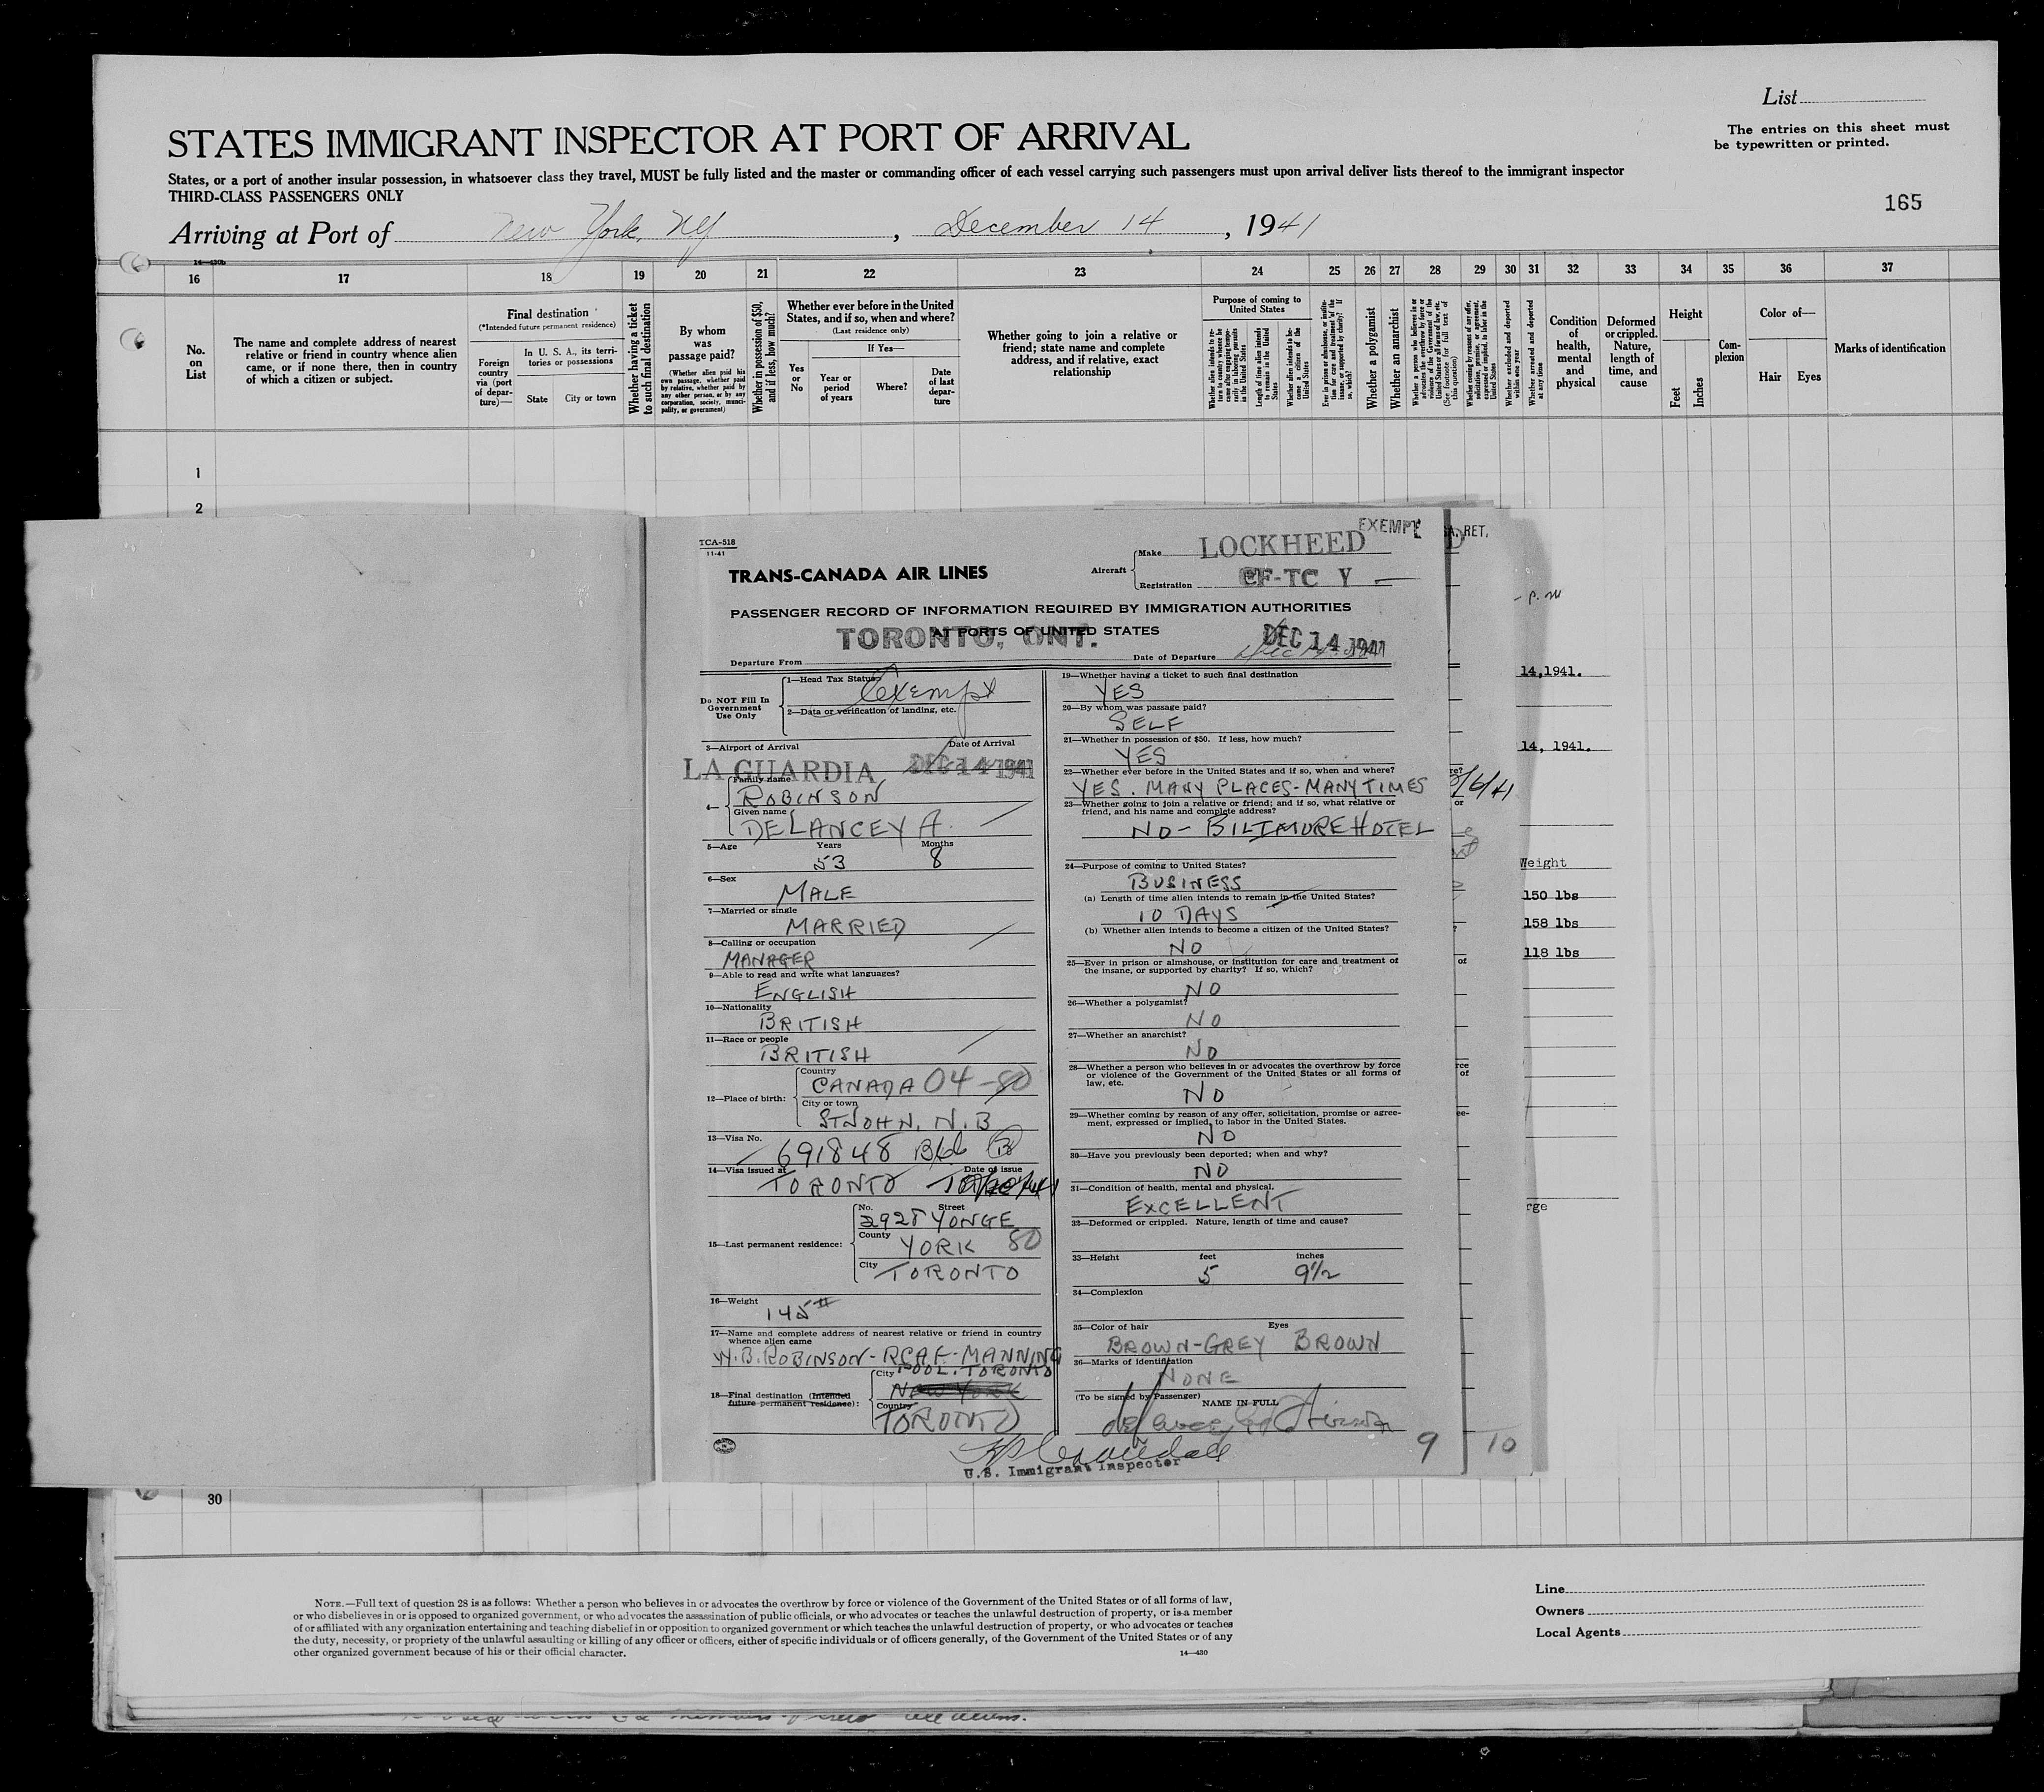 List
STATES IMMIGRANT INSPECTOR AT PORT OF ARRIVAL
The entries on this sheet must
be typewritten or printed.
States, or a port of another insular possession, in whatsoever class they travel, MUST be fully listed and the master or commanding officer of each vessel carrying such passengers must upon arrival deliver lists thereof to the immigrant inspector
THIRD-CLASS PASSENGERS ONLY
165
Arriving at Port of New York, NY, December 14, 1941
14—430b
16 17 18 19 20 21 22 23 24 25 26 27 28 29 30 31 32 33 34 35 36 37
No. on List
The name and complete address of nearest
relative or friend in country whence alien
came, or if none there, then in country
of which a citizen or subject.
Final destination
(*Intended future permanent residence)
Foreign country via (port of departure)—
In U. S. A., its territories or possessions
State
City or town
Whether having a ticket to such final destination
By whom was passage paid?
(Whether alien paid his own passage, whether paid by relative, whether paid by any other person, or by any corporation, society, municipality, or government)
Whether in possession of $50, and if less, how much?
Whether ever before in the United
States, and if so, when and where?
(Last residence only)
If Yes—
Yes or No
Year or period of years
Where?
Date of last departure
Whether going to join a relative or
friend; state name and complete
address, and if relative, exact
relationship
Purpose of coming to
United States
Whether alien intends to return to country whence he came after engaging temporarily in laboring pursuits in the United States
Length of time alien intends to remain in the United States
Whether alien intends to become a citizen of the United States
Ever in prison or almshouse, or institution for care and treatment of the insane, or supported by charity? If so, which?
Whether a polygamist
Whether an anarchist
Whether a person who believes in or advocates the overthrow by force or violence of the Government of the United States or all forms of law, etc. (See footnote for full text of this question)
Whether coming by reasons of any offer, solicitation, promise, or agreement, expressed or implied, to labor in the United States
Whether excluded and deported within one year
Whether arrested and deported at any time
Condition of health, mental and physical
Deformed or crippled. Nature, length of time, and cause
Height
Feet
Inches
Complexion
Color of—
Hair
Eyes
Marks of identification
1
2
TCA-518
11-41
EXEMPT
A. RET.
TRANS-CANADA AIR LINES
Aircraft
Make LOCKHEED
Registration CF-TC Y
PASSENGER RECORD OF INFORMATION REQUIRED BY IMMIGRATION AUTHORITIES
AT PORTS OF UNITED STATES
Departure From TORONTO, ONT.
Date of Departure DEC 14 1941
Do NOT Fill In
Government
Use Only
1—Head Tax Status Exempt
2—Data or verification of landing, etc.
3—Airport of Arrival LA GUARDIA
Date of Arrival DEC 14 1941
4—
Family name
ROBINSON
Given name
DELANCEY A.
5—Age Years 53 Months 8
6—Sex
MALE
7—Married or single
MARRIED
8—Calling or occupation
MANAGER
9—Able to read and write what languages?
ENGLISH
10—Nationality
BRITISH
11—Race or people
BRITISH
12—Place of birth:
Country
CANADA 04-80
City or town
ST JOHN, N.B
13—Visa No.
691848
14—Visa issued at
TORONTO
Date of issue
15—Last permanent residence:
No. Street
2928 YONGE
County
YORK 80
City
TORONTO
16—Weight
145#
17—Name and complete address of nearest relative or friend in country
whence alien came
W.B. ROBINSON - RCAF - MANNING
POOL. TORONTO
18—Final destination (Intended
future permanent residence):
City
NEW YORK
Country
TORONTO
19—Whether having a ticket to such final destination
YES
20—By whom was passage paid?
SELF
21—Whether in possession of $50. If less, how much?
YES
22—Whether ever before in the United States and if so, when and where?
YES. MANY PLACES - MANY TIMES
23—Whether going to join a relative or friend; and if so, what relative or
friend, and his name and complete address?
NO - BILTMORE HOTEL
24—Purpose of coming to United States?
BUSINESS
(a) Length of time alien intends to remain in the United States?
10 DAYS
(b) Whether alien intends to become a citizen of the United States?
NO
25—Ever in prison or almshouse, or institution for care and treatment of
the insane, or supported by charity? If so, which?
NO
26—Whether a polygamist?
NO
27—Whether an anarchist?
NO
28—Whether a person who believes in or advocates the overthrow by force
or violence of the Government of the United States or all forms of
law, etc.
NO
29—Whether coming by reason of any offer, solicitation, promise or agree-
ment, expressed or implied, to labor in the United States.
NO
30—Have you previously been deported; when and why?
NO
31—Condition of health, mental and physical.
EXCELLENT
32—Deformed or crippled. Nature, length of time and cause?
33—Height feet inches
5 9½
34—Complexion
35—Color of hair Eyes
BROWN-GREY BROWN
36—Marks of identification
NONE
(To be signed by Passenger)
NAME IN FULL
U.S. Immigrant Inspector
9
10
p. m
14,1941.
14, 1941.
re?
/6/41
or
Weight
150 lbs
158 lbs
118 lbs
of
rce
of
ee-
rge
30
NOTE.—Full text of question 28 is as follows: Whether a person who believes in or advocates the overthrow by force or violence of the Government of the United States or of all forms of law,
or who disbelieves in or is opposed to organized government, or who advocates the assassination of public officials, or who advocates or teaches the unlawful destruction of property, or is a member
of or affiliated with any organization entertaining and teaching disbelief in or opposition to organized government or which teaches the unlawful destruction of property, or who advocates or teaches
the duty, necessity, or propriety of the unlawful assaulting or killing of any officer or officers, either of specific individuals or of officers generally, of the Government of the United States or of any
other organized government because of his or their official character.
14—430
Line
Owners
Local Agents